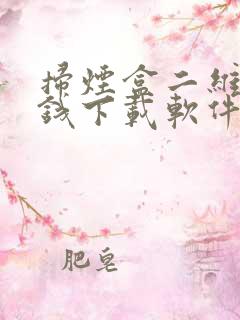 掃煙盒二維
錢下載軟件
肥皂